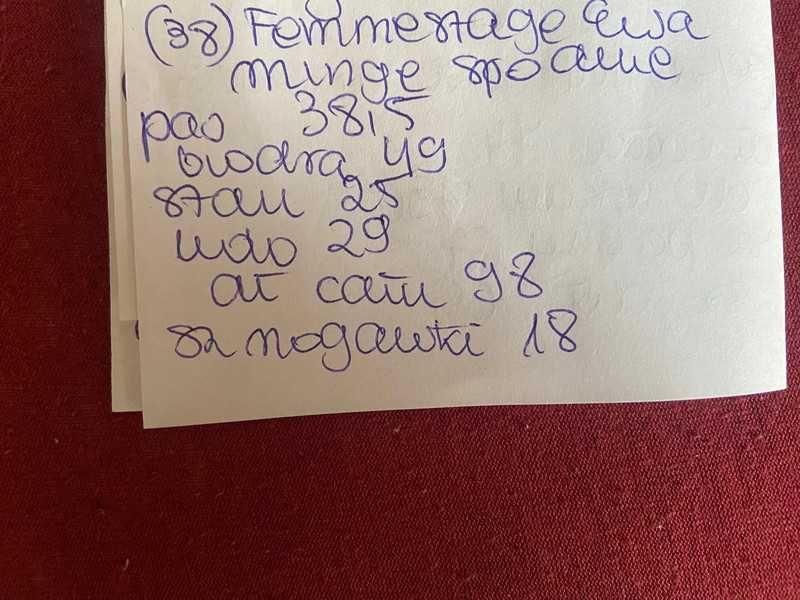 (38) Femmestage Ewa
minge spodnie
pas 38,5
biodra 49
stan 25
udo 29
dł całk 98
sz nogawki 18